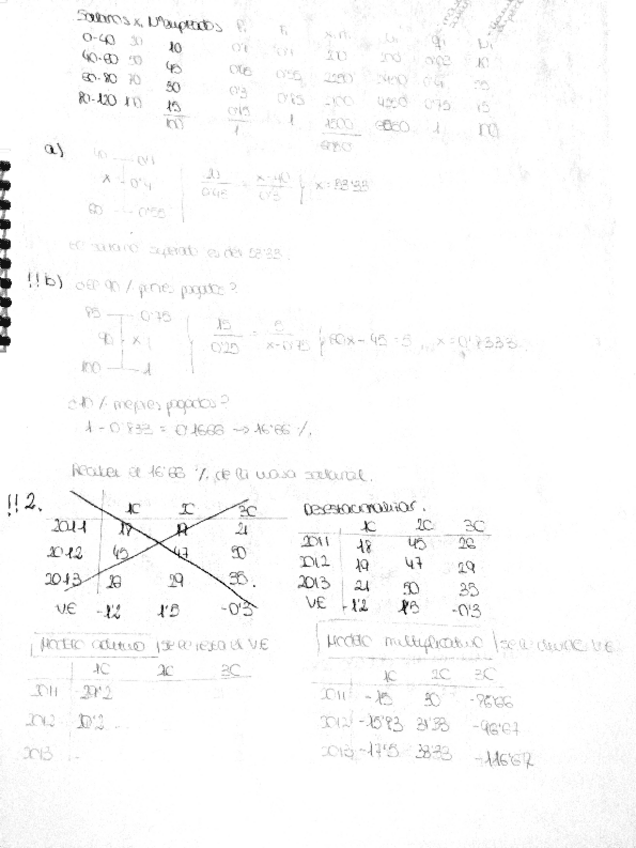 Salarios xi Nº empleados Pi Fi xi.ni qi Ni
0-40 20 10 0'1 0'1 200 200 10
40-60 50 45 0'45 0'55 2250 2450 55
60-80 70 30 0'3 0'85 2100 4550 0'75
80-120 100 15 0'15 1 1500 6050 1 100
100 1 6050
a) 40 0'1
x 0'4
60 0'55
20/0'45 = x-40/0'3 } x = 53'33
El salario superado es de 53'33.
!!b) ¿El 90 % peores pagados?
85 0'75
90 x
100 1
15/0'25 = 5/x-0'75 } 60x-45=5 ... x=0'8333...
¿10 % mejores pagados?
1-0'833 = 0'1666 → 16'66 %.
Reciben el 16'66 % de la masa salarial.
!!2.
1C 2C 3C
2011 18 19 21
2012 45 47 50
2013 26 29 35
VE -1'2 1'5 -0'3
Desestacionalizar.
1C 2C 3C
2011 18 45 26
2012 19 47 29
2013 21 50 35
VE -1'2 1'5 -0'3
Modelo aditivo | se le resta el VE
1C 2C 3C
2011
2012 20'2
2013
Modelo multiplicativo | se divide VE
1C 2C 3C
2011 -15 30 -86'66
2012 -15'83 31'33 -96'67
2013 -17'5 33'33 -116'67